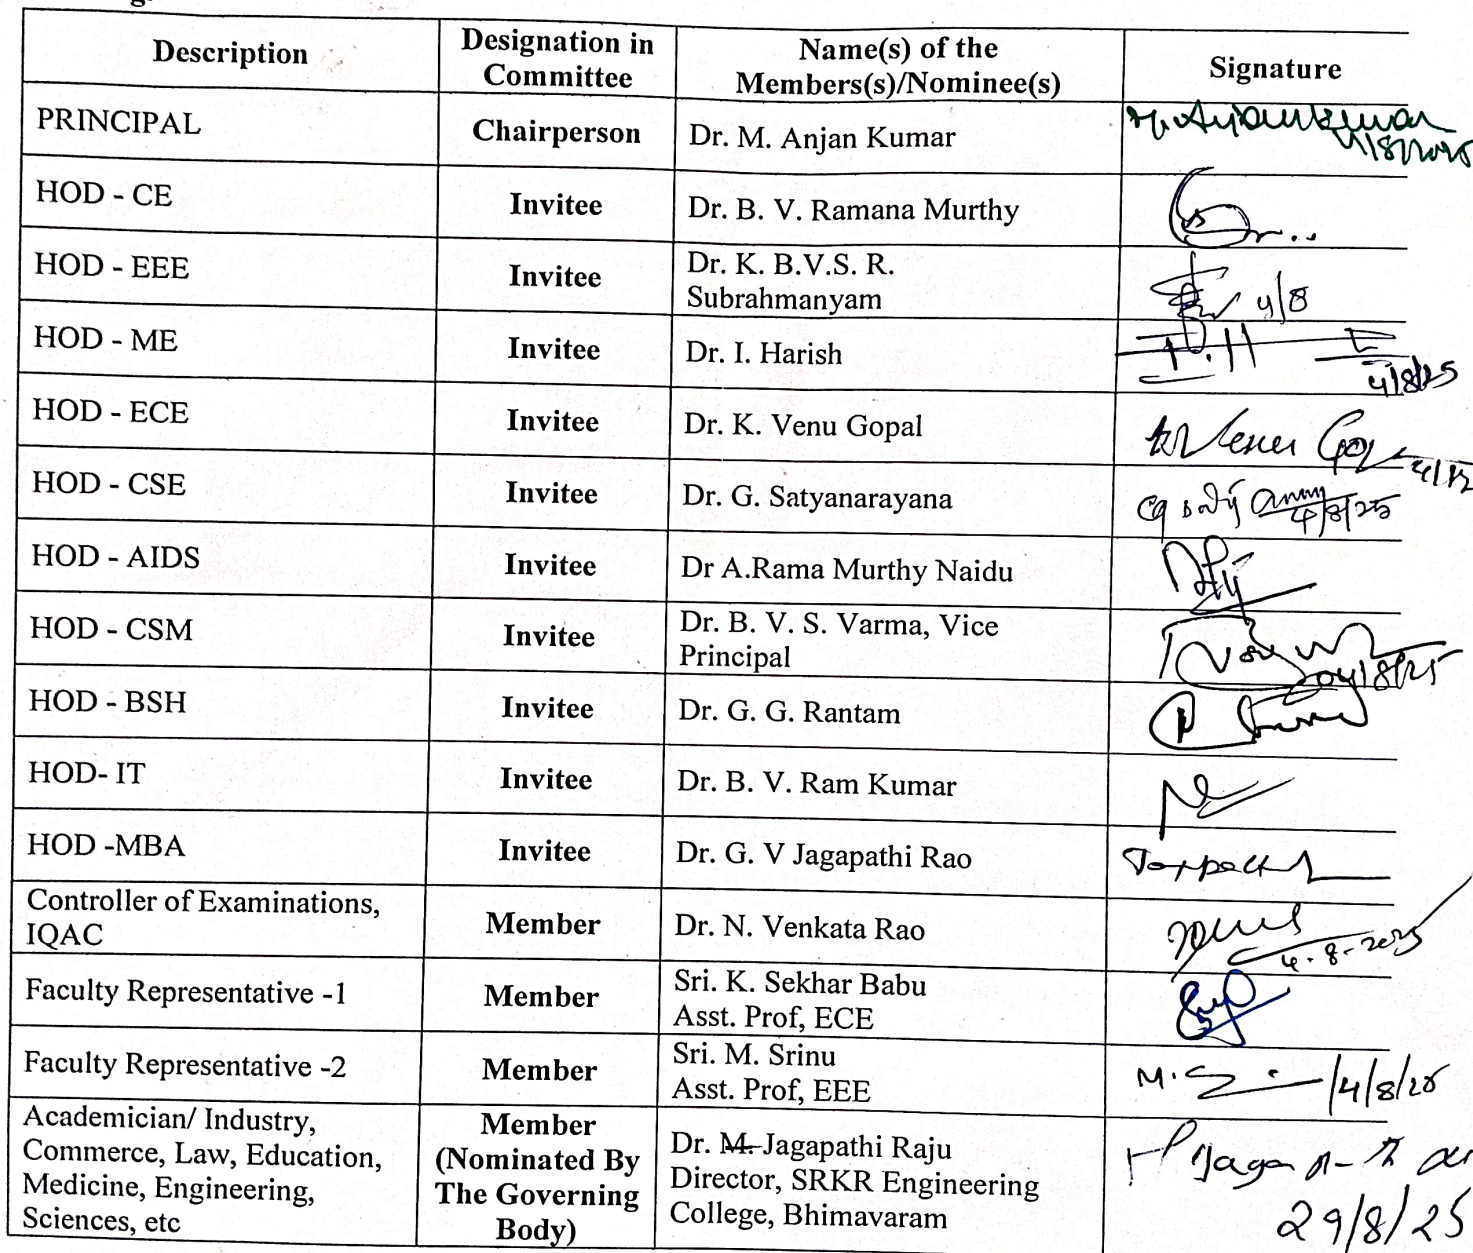 Description Designation in Committee Name(s) of the Members(s)/Nominee(s) Signature
PRINCIPAL Chairperson Dr. M. Anjan Kumar M. Anjankumar 4/8/2025
HOD - CE Invitee Dr. B. V. Ramana Murthy
HOD - EEE Invitee Dr. K. B.V.S. R.
Subrahmanyam 4/8
HOD - ME Invitee Dr. I. Harish 4/8/25
HOD - ECE Invitee Dr. K. Venu Gopal
HOD - CSE Invitee Dr. G. Satyanarayana 4/8/25
HOD - AIDS Invitee Dr A.Rama Murthy Naidu
HOD - CSM Invitee Dr. B. V. S. Varma, Vice
Principal 04/8/25
HOD - BSH Invitee Dr. G. G. Rantam
HOD- IT Invitee Dr. B. V. Ram Kumar
HOD -MBA Invitee Dr. G. V Jagapathi Rao
Controller of Examinations,
IQAC Member Dr. N. Venkata Rao 4-8-2025
Faculty Representative -1 Member Sri. K. Sekhar Babu
Asst. Prof, ECE
Faculty Representative -2 Member Sri. M. Srinu
Asst. Prof, EEE 4/8/25
Academician/ Industry,
Commerce, Law, Education,
Medicine, Engineering,
Sciences, etc
Member
(Nominated By
The Governing
Body)
Dr. M. Jagapathi Raju
Director, SRKR Engineering
College, Bhimavaram
29/8/25